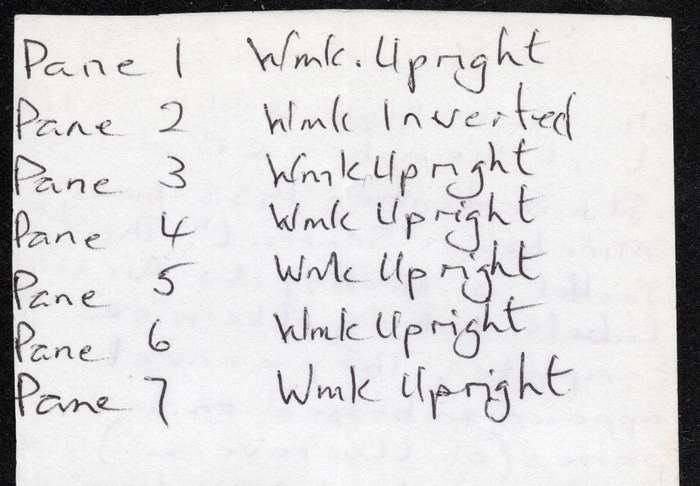 Pane 1 Wmk. Upright
Pane 2 Wmk Inverted
Pane 3 Wmk Upright
Pane 4 Wmk Upright
Pane 5 Wmk Upright
Pane 6 Wmk Upright
Pane 7 Wmk Upright